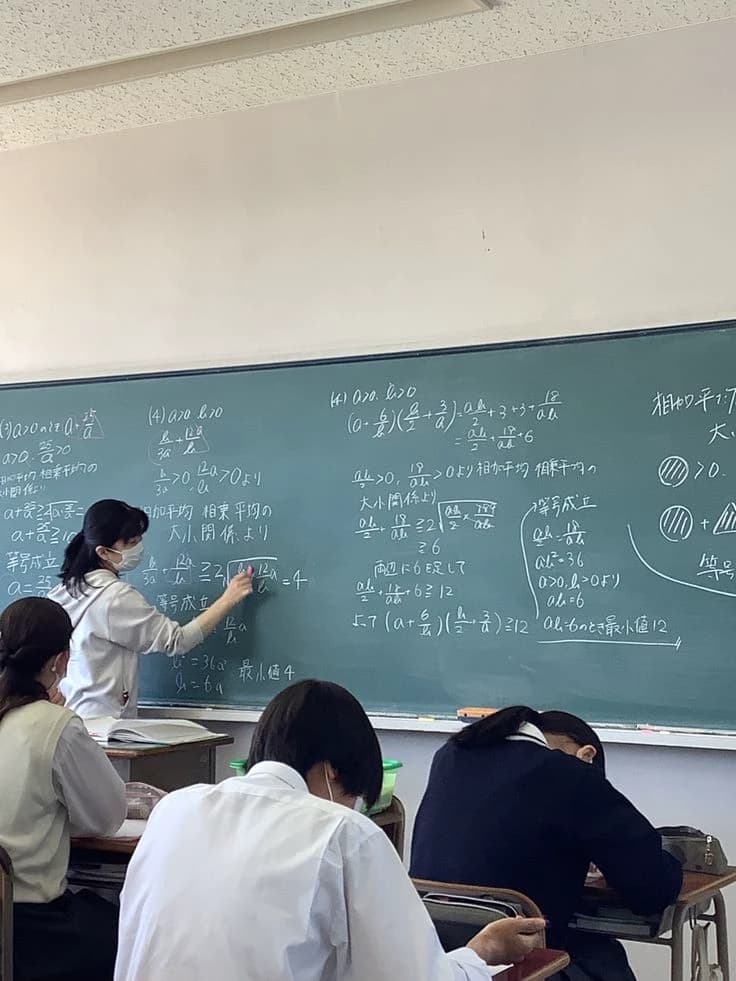 (3) a>0のとき a+25/a
a>0, 25/a>0
相加平均 相乗平均の
大小関係より
等号成立
(4) a>0, b>0
b/3a + 12a/b
b/3a>0, 12a/b>0より
相加平均 相乗平均の
大小関係より
b/3a + 12a/b ≧ 2√ = 4
等号成立
b² = 36a²
b = 6a 最小値 4
(4) a>0, b>0
(a+6/b)(b/2+3/a) = ab/2+3+3+18/ab
= ab/2+18/ab+6
ab/2>0, 18/ab>0より相加平均 相乗平均の
大小関係より
ab/2+18/ab ≧ 2√ab/2×18/ab
≧ 6
両辺に6を足して
ab/2+18/ab+6 ≧ 12
よって (a+6/b)(b/2+3/a) ≧ 12
等号成立
ab/2 = 18/ab
ab² = 36
a>0, b>0より
ab=6
ab=6のとき最小値12
相加平
大
>0.
+
等号